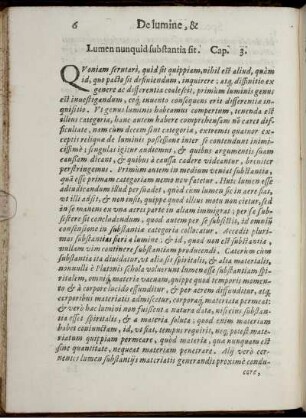 6 De lumine, &
Lumen nunquid substantia sit. Cap. 3.
QVoniam scrutari, quid sit quippiam, nihil est aliud, quàm
id, quo pacto sit definiendum, inquirere: atq; diffinitio ex
genere ac differentia coalescit, primùm luminis genus
est inuestigandum, eoq́; inuento consequens erit differentia in-
quisita. Vt genus luminis habeamus compertum, tenenda est
illius categoria, hanc autem habere comprehensam nō caret dif-
ficultate, nam cùm decem sint categoriæ, extremis quatuor ex-
ceptis reliquæ de luminis possessione inter se contendunt inimi-
cissimè; singulas igitur audemus, & quibus argumentis suam
causam dicant, & quibus à caussa cadere videantur, breuiter
perstringemus. Primùm autem in medium veniat substantia,
quæ esse primam categoriam nemo non fatetur. Huic lumen esse
adiudicandum illud persuadet, quòd cum lumen sic in aere sus,
vt illi adsit, & non inhæreat, quippe cùm aeris motu non cietur, sed
in se manens ex vna aeris parte in aliam immigrat; per se subsi-
stere sit concludendum, quod autem per se subsistit, id omnium
consensione in substantiæ categoria collocatur. Accedit pluri-
mas substantias fieri à lumine: & id, quod non est substantia,
nullam vim continere substantiam producendi. Cæterùm cùm
substantia ita diuidatur, vt alia sit spiritalis, & alia materialis,
nonnulli è Platonis schola voluerunt lumen esse substantiam spi-
ritalem, omniq́; materia vacuam, quippe quod temporis momen-
to & à corpore lucido effunditur, & per aerem diffunditur, etsi
corporibus materiatis admiscetur, corporaq́; materiata permeat
& verò hæc lumini non fuissent à natura data, nisi esset substan-
tia esset spiritalis, & à materia soluta: quod enim materiam
habet coniunctam, id, vt fiat, tempus requirit, neq; potest ma-
teriatum quippiam permeare, quòd materia, quæ nunquam est
sine quantitate, nequeat materiam penetrare. Alij verò cer-
nentes lumen substantijs materiatis generandis proximè condu-
cere,